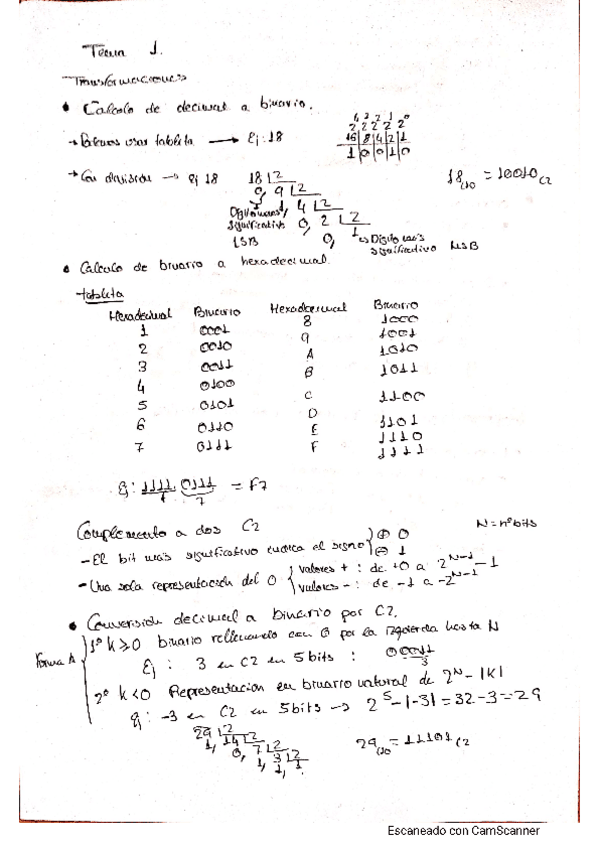 Tema 1.
Transformaciones
• Calculo de decimal a binario.
2⁴ 2³ 2² 2¹ 2⁰
→ Podemos usar tablita → Ej: 18 16 8 4 2 1
1 0 0 1 0
→ Con división → ej 18 18 | 2 18₍₁₀ = 10010 C2
0, 9 | 2
1, 4 | 2
Digito menos significativo LSB
0, 2 | 2
0, 1 → Digito más significativo MSB
• Calculo de binario a hexadecimal.
tablita
Hexadecimal Binario Hexadecimal Binario
1 0001 8 1000
2 0010 9 1001
3 0011 A 1010
4 0100 B 1011
5 0101 C 1100
6 0110 D 1101
7 0111 E 1110
F 1111
Ej: 1111 0111 = F7
F 7
Complemento a dos C2 N = nº bits
- El bit más significativo indica el signo ⊕ 0
⊖ 1
- Una sola representación del 0 valores + : de +0 a 2ᴺ⁻¹ - 1
valores - : de -1 a -2ᴺ⁻¹
• Conversión decimal a binario por C2.
Forma A
1º k ≥ 0 binario rellenando con 0 por la izquierda hasta N
Ej: 3 en C2 en 5 bits : 00011
3
2º k < 0 Representacion en binario natural de 2ᴺ - |k|
Ej: -3 en C2 en 5 bits → 2⁵ - |-3| = 32 - 3 = 29
29 | 2
1, 14 | 2 29₍₁₀ = 11101 C2
0, 7 | 2
1, 3 | 2
1, 1.
Escaneado con CamScanner